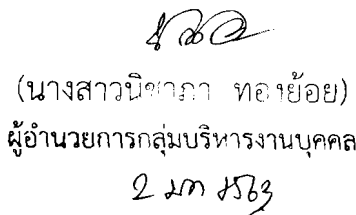 (นางสาวนิชาภา ทองย้อย)
ผู้อำนวยการกลุ่มบริหารงานบุคคล
2 มค 2563